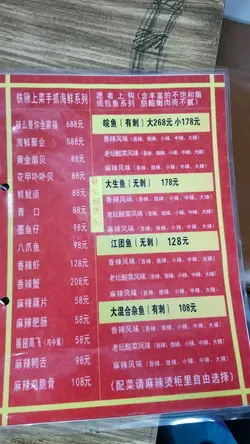 铁锹上菜手抓海鲜系列
辣么香你全家福 688元
海鲜聚会 488元
黄金扇贝 88元
花甲卟卟贝 88元
鲜鱿须 88元
青口 88元
墨鱼仔 98元
八爪鱼 98元
香辣虾 128元
香辣蟹 208元
麻辣藕片 58元
麻辣肥肠 58元
展翅高飞(鸡中翅) 58元
麻辣鸭舌 98元
麻辣鸡脆骨 108元
愿者上钩(含丰富的不饱和脂
纸包鱼系列 肪酸嫩肉而不腻)
皖鱼(有刺)大268元 小178元
香辣风味(香辣、微辣、小辣、中辣、大辣)
老坛酸菜风味(香辣、微辣、小辣、中辣、大辣)
麻辣风味(香辣、微辣、小辣、中辣、大辣)
大生鱼(无刺) 178元
香辣风味(香辣、微辣、小辣、中辣、大辣)
老坛酸菜风味(香辣、微辣、小辣、中辣、大辣)
麻辣风味(香辣、微辣、小辣、中辣、大辣)
江团鱼(无刺) 128元
香辣风味(香辣、微辣、小辣、中辣、大辣)
老坛酸菜风味(香辣、微辣、小辣、中辣、大辣)
麻辣风味(香辣、微辣、小辣、中辣、大辣)
大混合杂鱼(有刺) 108元
香辣风味(香辣、微辣、小辣、中辣、大辣)
老坛酸菜风味(香辣、微辣、小辣、中辣、大辣)
麻辣风味(香辣、微辣、小辣、中辣、大辣)
(配菜请麻辣烫柜里自由选择)